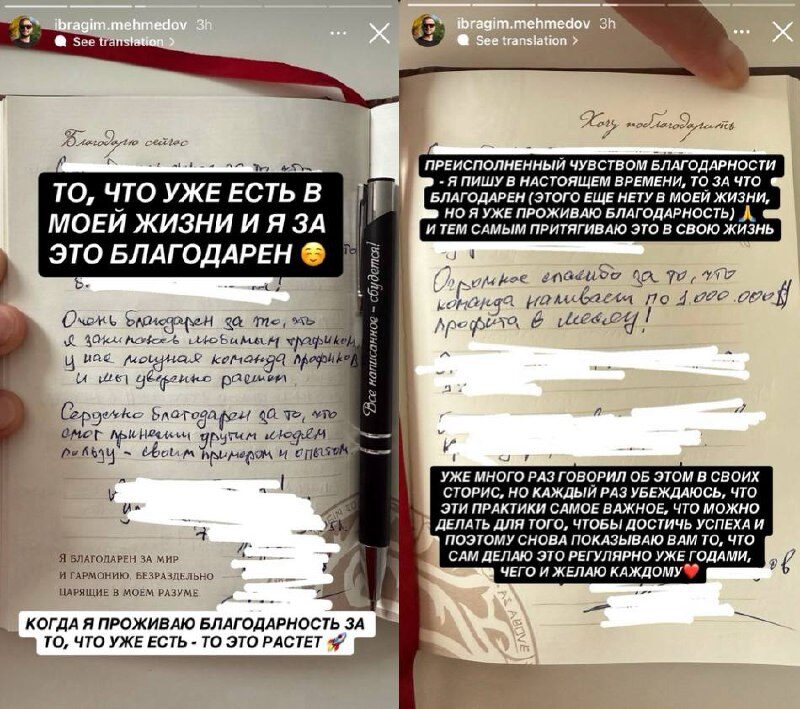 ibragim.mehmedov 3h
See translation >
Благодарю сейчас
ТО, ЧТО УЖЕ ЕСТЬ В
МОЕЙ ЖИЗНИ И Я ЗА
ЭТО БЛАГОДАРЕН ☺️
Очень благодарен за то, что
я занимаюсь любимым трафиком,
у нас мощная команда профиков
и мы уверенно растем
Сердечно благодарен за то, что
смог принести другим людям
пользу - своим примером и опытом
Все написанное - сбудется!
Я БЛАГОДАРЕН ЗА МИР
И ГАРМОНИЮ, БЕЗРАЗДЕЛЬНО
ЦАРЯЩИЕ В МОЕМ РАЗУМЕ.
КОГДА Я ПРОЖИВАЮ БЛАГОДАРНОСТЬ ЗА
ТО, ЧТО УЖЕ ЕСТЬ - ТО ЭТО РАСТЕТ 🚀
ibragim.mehmedov 3h
See translation >
Хочу поблагодарить
ПРЕИСПОЛНЕННЫЙ ЧУВСТВОМ БЛАГОДАРНОСТИ
- Я ПИШУ В НАСТОЯЩЕМ ВРЕМЕНИ, ТО ЗА ЧТО
БЛАГОДАРЕН (ЭТОГО ЕЩЕ НЕТУ В МОЕЙ ЖИЗНИ,
НО Я УЖЕ ПРОЖИВАЮ БЛАГОДАРНОСТЬ) 🙏
И ТЕМ САМЫМ ПРИТЯГИВАЮ ЭТО В СВОЮ ЖИЗНЬ
Огромное спасибо за то, что
команда наливает по 1.000.000$
профита в месяц!
УЖЕ МНОГО РАЗ ГОВОРИЛ ОБ ЭТОМ В СВОИХ
СТОРИС, НО КАЖДЫЙ РАЗ УБЕЖДАЮСЬ, ЧТО
ЭТИ ПРАКТИКИ САМОЕ ВАЖНОЕ, ЧТО МОЖНО
ДЕЛАТЬ ДЛЯ ТОГО, ЧТОБЫ ДОСТИЧЬ УСПЕХА И
ПОЭТОМУ СНОВА ПОКАЗЫВАЮ ВАМ ТО, ЧТО
САМ ДЕЛАЮ ЭТО РЕГУЛЯРНО УЖЕ ГОДАМИ,
ЧЕГО И ЖЕЛАЮ КАЖДОМУ❤️
AS ABOVE